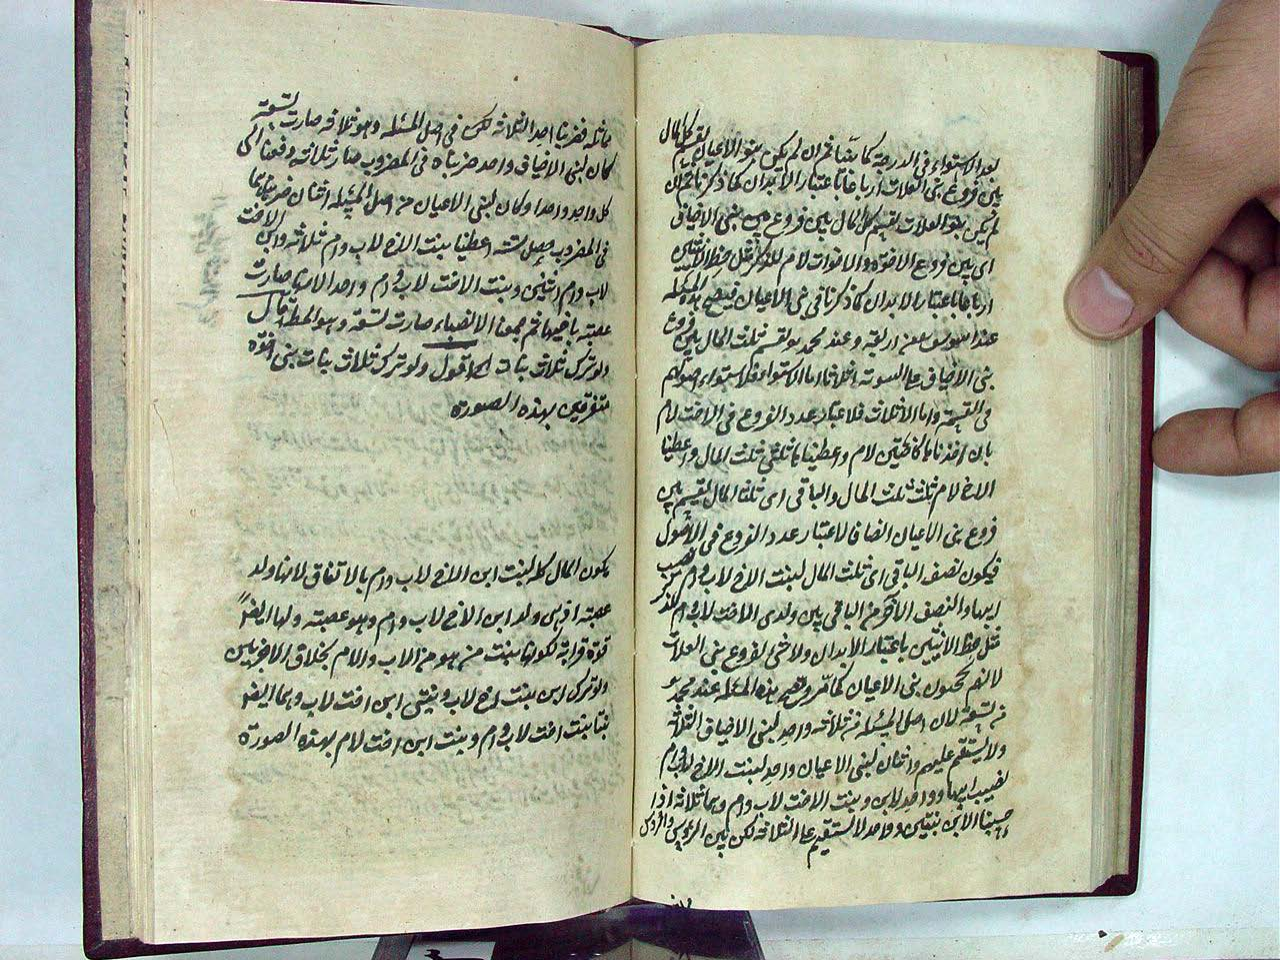 بعد الاستواء فى الدرجة كما بينا ثم ان لم يكن بنو الاعيان يقسم كل المال
بين فروع بنى العلات ارباعا باعتبار الابدان كما ذكرنا ثم ان
لم يكن بنو العلات يقسم كل المال بين فروع بنى الاخياف
اى بين فروع الاخوة والاخوات لام للذكر مثل حظ الانثيين
ارباعا باعتبار الابدان كما ذكرنا فى بنى الاعيان فيصح هذه المسئلة
عند ابى يوسف من اربعة وعند محمد يقسم ثلث المال بين فروع
بنى الاخياف على السوية اثلاثا اما الاستواء فلاستواء اصولهم
فى القسمة واما الاثلاث فلاعتبار عدد الفروع فى الاخت لام
بان اخذناها كاختين لام واعطينا لها ثلثى ثلث المال واعطينا
الاخ لام ثلث ثلث المال والباقى اى ثلثا المال يقسم بين
فروع بنى الاعيان انصافا لاعتبار عدد الفروع فى الاصول
فيكون نصف الباقى اى ثلث المال لبنت الاخ لاب وام نصيب
ابيها والنصف الآخر من الباقى بين ولدى الاخت لاب وام للذكر
مثل حظ الانثيين باعتبار الابدان ولا شئ لفروع بنى العلات
لانهم محجوبون ببنى الاعيان كما مر وتصح هذه المسئلة عند محمد
من تسعة لان اصل المسئلة من ثلاثة واحد لبنى الاخياف الثلاثة
ولا يستقيم عليهم واثنان لبنى الاعيان واحد لبنت الاخ لاب وام
نصيب ابيها وواحد لابن وبنت الاخت لاب وام وهما ثلاثة اذا
حسبنا الابن بنتين وواحد لا يستقيم على الثلاثة لكن بين الرؤس والرؤس
مماثلة فضربنا احد الثلاثة لكن فى اصل المسئلة وهو ثلاثة صارت تسعة
كان لبنى الاخياف واحد ضربناه فى المضروب صار ثلاثة دفعنا الى
كل واحد واحدا وكان لبنى الاعيان من اصل المسئلة اثنان ضربناهما
فى المضروب حصل ستة اعطينا بنت الاخ لاب وام ثلاثة وابن الاخت
لاب وام اثنين وبنت الاخت لاب وام واحد الانها صارت
عصبة باخيها ثم جمعنا الانصباء صارت تسعة وهو المط قال
ولو ترك ثلاث بنات اقول ولو ترك ثلاث بنات بنى اخوة
متفرقين بهذه الصورة
يكون المال كله لبنت ابن الاخ لاب وام بالاتفاق لانها ولد
عصبة اذ هى ولد ابن الاخ لاب وام وهو عصبة ولها ايضا
قوة قرابة لكونها بنت من هو من الاب والام بخلاق الاخريين
ولو ترك ابن بنت اخ لاب وبنتى ابن اخت لاب وهما ايضا
بنتا بنت اخت لاب وام وبنت ابن اخت لام بهذه الصورة